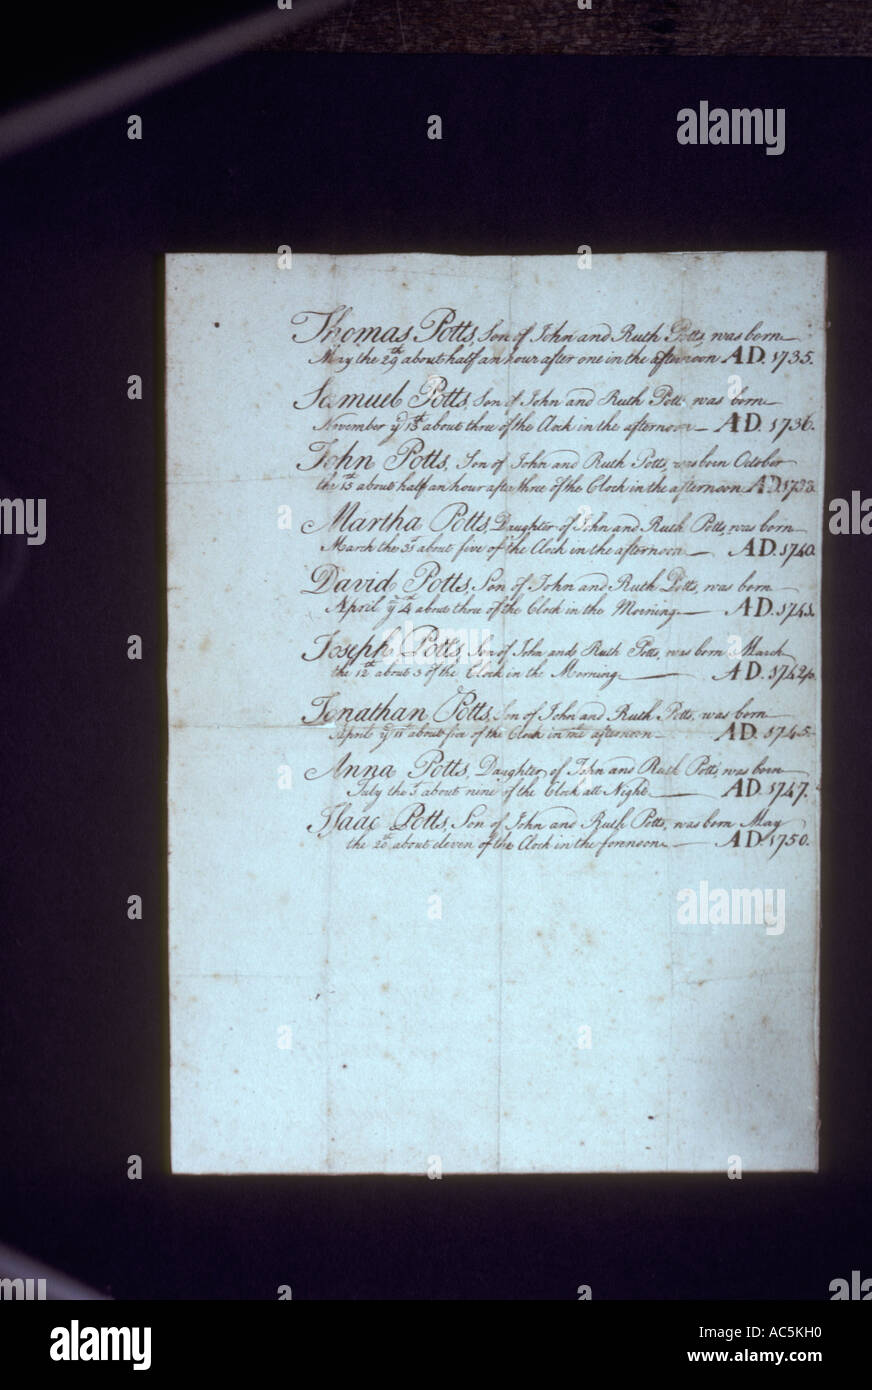 Thomas Potts, Son of John and Ruth Potts, was born
May the 29th about half an hour after one in the afternoon AD. 1735.
Samuel Potts, Son of John and Ruth Potts was born
November ye 13th about three of the Clock in the afternoon AD. 1736.
John Potts, Son of John and Ruth Potts, was born October
the 15th about half an hour after three of the Clock in the afternoon AD. 1738.
Martha Potts, Daughter of John and Ruth Potts, was born
March the about five of the Clock in the afternoon AD. 1740.
David Potts, Son of John and Ruth Potts, was born
April ye 4th about three of the Clock in the Morning AD. 1741.
Joseph Potts, Son of John and Ruth Potts, was born March
the 12th about 3 of the Clock in the Morning AD. 1742
Jonathan Potts, Son of John and Ruth Potts, was born
April ye 11th about five of the Clock in the afternoon AD. 1745.
Anna Potts, Daughter of John and Ruth Potts, was born
July the about nine of the Clock att Night AD. 1747.
Isaac Potts, Son of John and Ruth Potts, was born May
the 20th about eleven of the Clock in the forenoon AD. 1750.
alamy
a
alamy
Image ID: AC5KH0
www.alamy.com